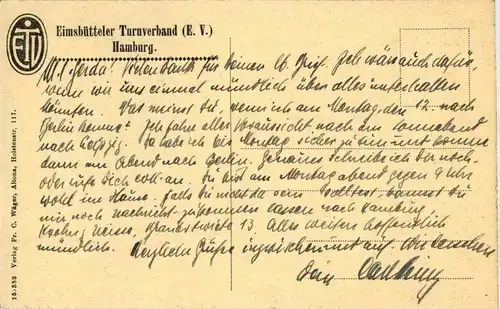 ETV
Eimsbütteler Turnverband (E. V.)
Hamburg.
M. l. Gerda! Vielen Dank für Deinen lb. Brief. Ich wäre auch dafür,
wenn wir uns einmal mündlich über alles unterhalten
könnten. Was meinst Du, wenn ich am Montag, den 12. nach
Berlin komme? Ich fahre aller Voraussicht nach am Sonnabend
nach Da habe ich bis Montag sicher zu tun und komme
dann am Abend nach Berlin. Genaues schreibe ich Dir noch
oder rufe Dich evtl. an. Du bist am Montag abend gegen 9 Uhr
wohl im Hause. Falls Du nicht da sein solltest, kannst Du
mir noch Nachricht zukommen lassen nach Hamburg
13. Alles weitere hoffentlich
mündlich. Herzliche Grüße inzwischen und auf Wiedersehen
Dein
15.353 Verlag Fr. C. Wäger, Altona, Holstenstr. 117.